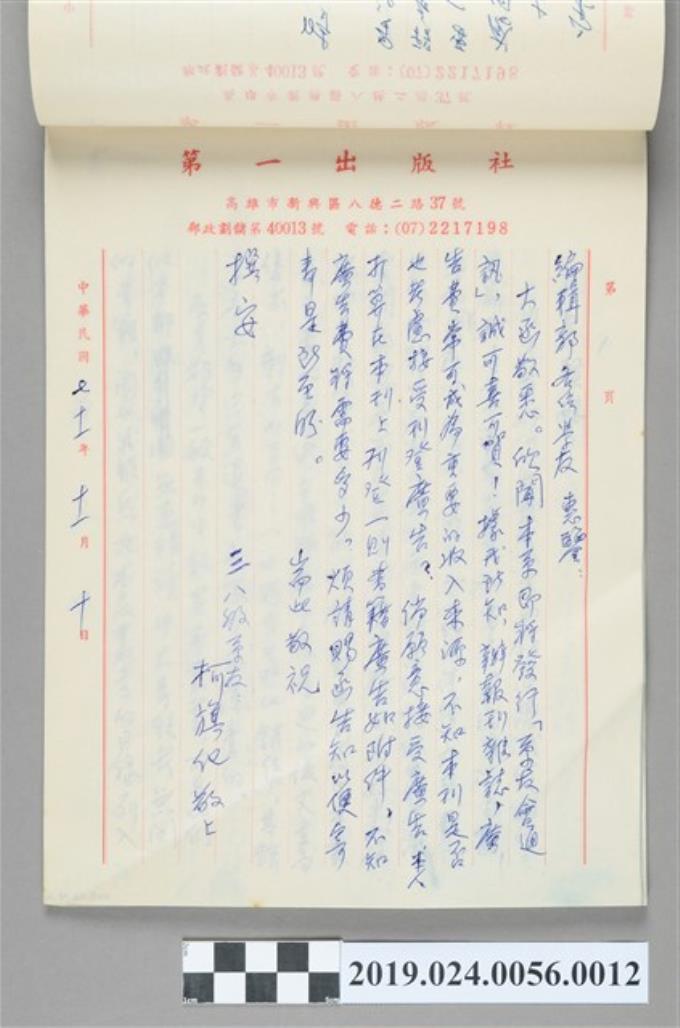 第一出版社
高雄市新興區八德二路37號
郵政劃撥第40013號 電話：(07)2217198
第 頁
編輯部各位學友 惠鑒：
大函敬悉。欣聞本系即將發行「系友會通
訊」，誠可喜可賀！據我所知，辦報刊雜誌，廣
告費常可成為重要的收入來源，不知本刊是否
也考慮接受刊登廣告？倘願意接受廣告，本人
打算在本刊上刊登一則書籍廣告如附件，不知
廣告費將需要多少，煩請賜函告知以便寄
奉是所至盼。
耑此 敬祝
撰安
三八級系友
柯旗化敬上
中華民國七十一年十一月十日
2019.024.0056.0012